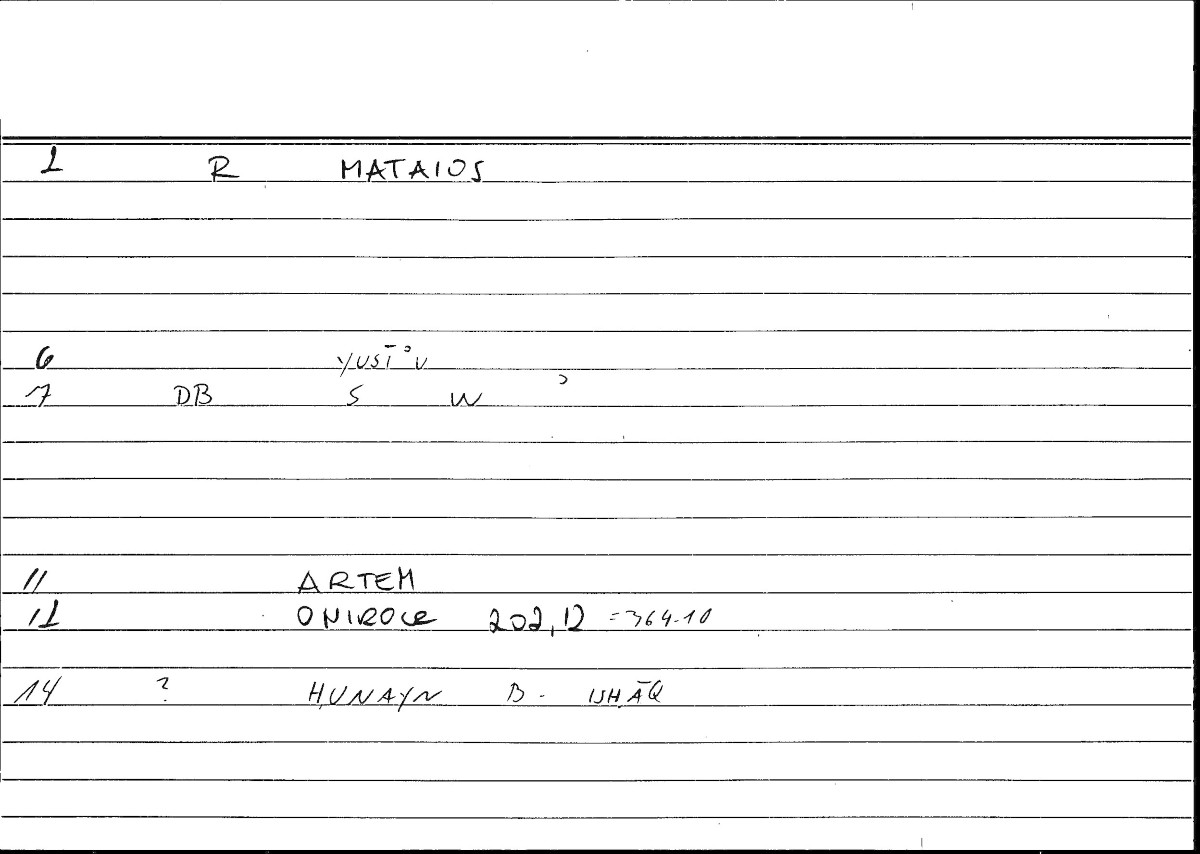 1 R MATAIOS
6 YUSĪʾU
7 DB S W ʾ
11 ARTEM
12 ONIROCR 202,12 =364-10
14 ? ḤUNAYN B. ISḤĀQ